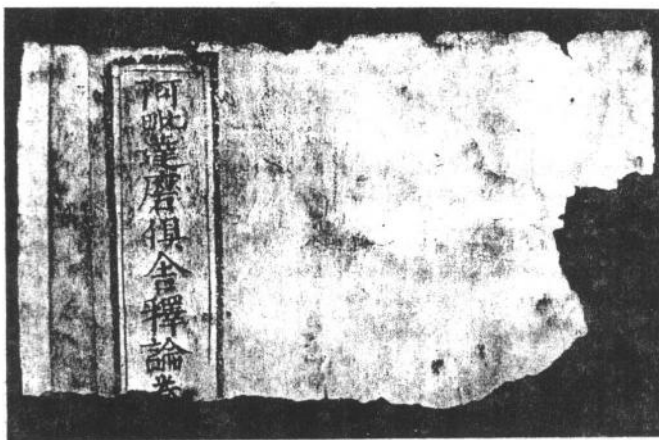 阿毗達磨俱舍釋論卷